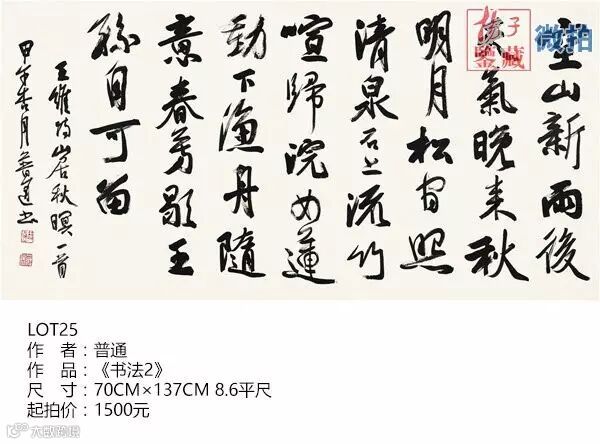 空山新雨後
天氣晚来秋
明月松间照
清泉石上流竹
喧歸浣女蓮
動下漁舟隨
意春芳歇王
孫自可留
王維诗山居秋暝一首
甲午杏月魯达书
子
鉴藏
微拍
LOT25
作 者：普通
作 品：《书法2》
尺 寸：70CM×137CM 8.6平尺
起拍价：1500元
大欧跨境